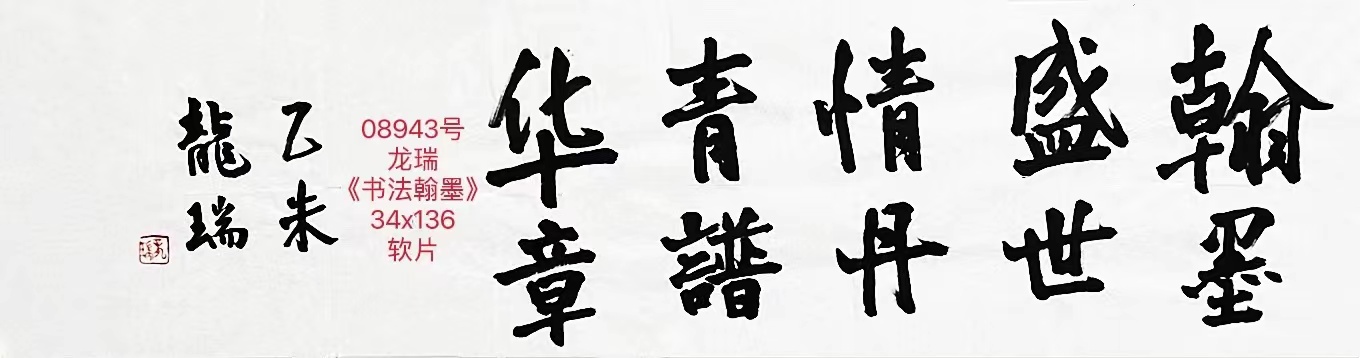 翰墨
盛世
情丹
青譜
华章
08943号
龙瑞
《书法翰墨》
34x136
软片
乙未
龍瑞